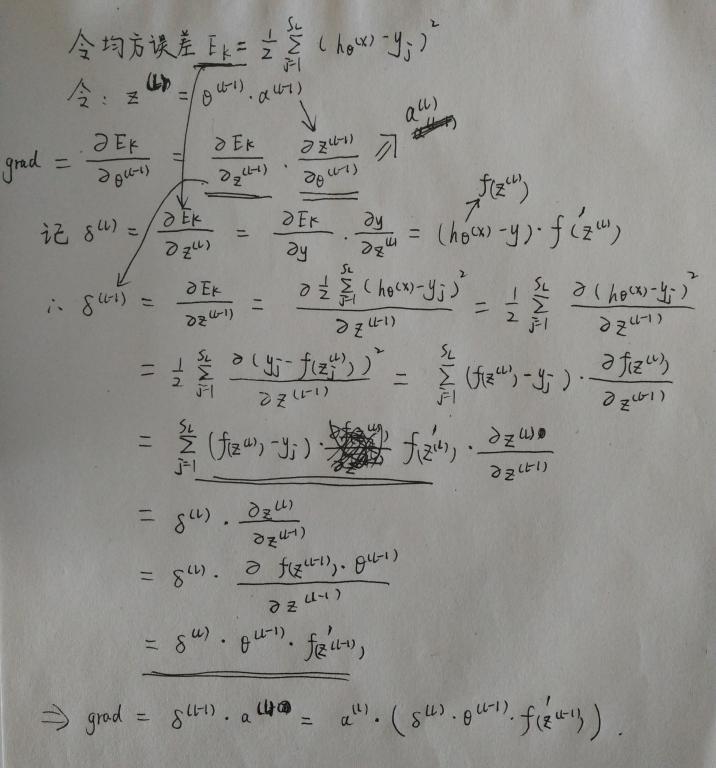 令均方误差 E_k = 1/2 Σ_{j=1}^{S_L} (h_θ(x) - y_j)^2
令: z^(L) = θ^(L-1) · a^(L-1)
grad = ∂E_k/∂θ^(L-1) = ∂E_k/∂z^(L-1) · ∂z^(L-1)/∂θ^(L-1) ⇗ a^(L)
f(z^(L))
记 δ^(L) = ∂E_k/∂z^(L) = ∂E_k/∂y · ∂y/∂z^(L) = (h_θ(x) - y) · f'(z^(L))
∴ δ^(L-1) = ∂E_k/∂z^(L-1) = ∂ 1/2 Σ_{j=1}^{S_L} (h_θ(x) - y_j)^2 / ∂z^(L-1) = 1/2 Σ_{j=1}^{S_L} ∂(h_θ(x) - y_j)^2 / ∂z^(L-1)
= 1/2 Σ_{j=1}^{S_L} ∂(y_j - f(z_j^(L)))^2 / ∂z^(L-1) = Σ_{j=1}^{S_L} (f(z^(L)) - y_j) · ∂f(z^(L)) / ∂z^(L-1)
= Σ_{j=1}^{S_L} (f(z^(L)) - y_j) · f'(z^(L)) · ∂z^(L) / ∂z^(L-1)
= δ^(L) · ∂z^(L) / ∂z^(L-1)
= δ^(L) · ∂ f(z^(L-1)) · θ^(L-1) / ∂z^(L-1)
= δ^(L) · θ^(L-1) · f'(z^(L-1))
⇒ grad = δ^(L-1) · a^(L) = a^(L) · (δ^(L) · θ^(L-1) · f'(z^(L-1))).